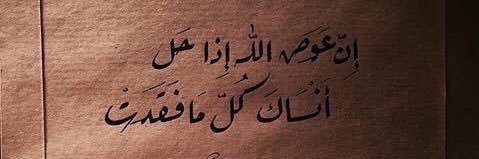 إِنّ عَوَضَ اللّٰه إِذَا حَل
أَنْسَاكَ كُلّ مَا فَقَدَتْ